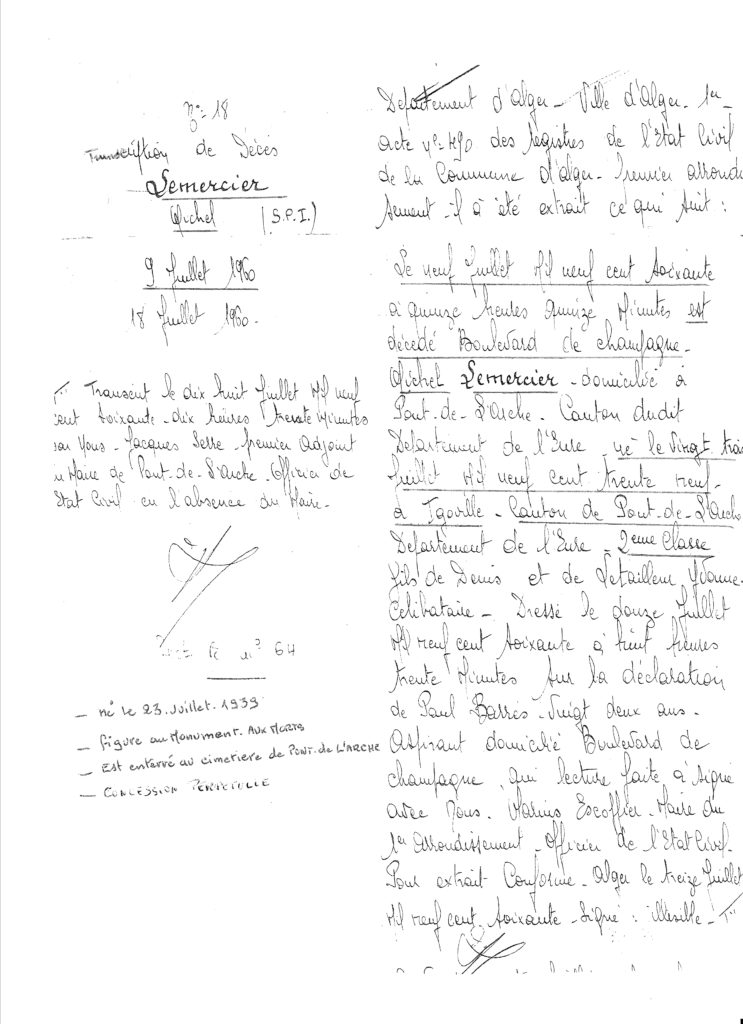 N° 18
Transcription de Décès
Lemercier
Michel (S.P.I.)
9 Juillet 1960
18 Juillet 1960.
Transcrit le dix huit Juillet Mil neuf
cent soixante - dix heures trente Minutes
par Nous - Jacques Serre - Premier Adjoint
Maire de Pont-de-l'Arche - Officier de
Etat Civil en l'absence du Maire -
n° 64
- né le 23. Juillet. 1939
- figure au Monument. AUX MORTS
- Est enterré au cimetiere de PONT-de L'ARCHE
- CONCESSION PERPETUELLE
Département d'Alger - Ville d'Alger - 1er
acte N° 490 des registres de l'Etat Civil
de la Commune d'Alger - Premier arrondi
ssement - il a été extrait ce qui suit :
Le neuf Juillet Mil neuf cent soixante
à quinze heures quinze Minutes est
décédé Boulevard de champagne -
Michel Lemercier - domicilié à
Pont-de-l'Arche - Canton dudit
Département de l'Eure - né le Vingt trois
Juillet Mil neuf cent trente neuf -
à Igoville - Canton de Pont-de-l'Arche
Département de l'Eure - 2eme Classe
fils de Denis et de Letailleur Yvonne -
Célibataire - Dressé le douze Juillet
Mil neuf cent soixante à huit heures
trente Minutes sur la déclaration
de Paul Barrès - Vingt deux ans -
Aspirant domicilié Boulevard de
champagne qui lecture faite à signé
avec Nous. Marius Escoffier - Maire du
1er arrondissement - Officier de l'Etat Civil.
Pour extrait Conforme - Alger le treize Juillet
Mil neuf cent soixante - signé : illisible -